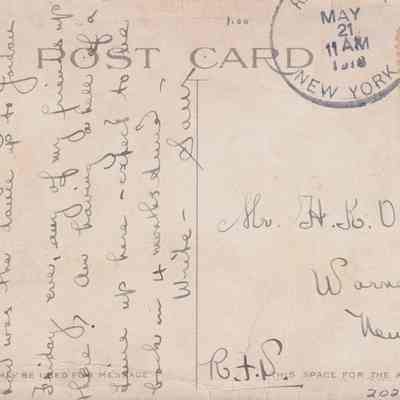 1.00
POST CARD
MAY
21
11 AM
1918
NEW YORK
how was the dance up to
Friday eve, any of my friends up
there? Am having a hell of a
time up here - expect to be
back in 4 months
Write -
Mr. H. K. D
Warne
New
R.F.D.
MAY BE USED FOR MESSAGE
THIS SPACE FOR THE A
202